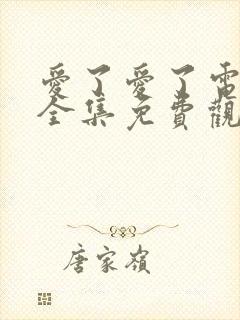 愛了愛了電
全集免費觀
唐家嶺